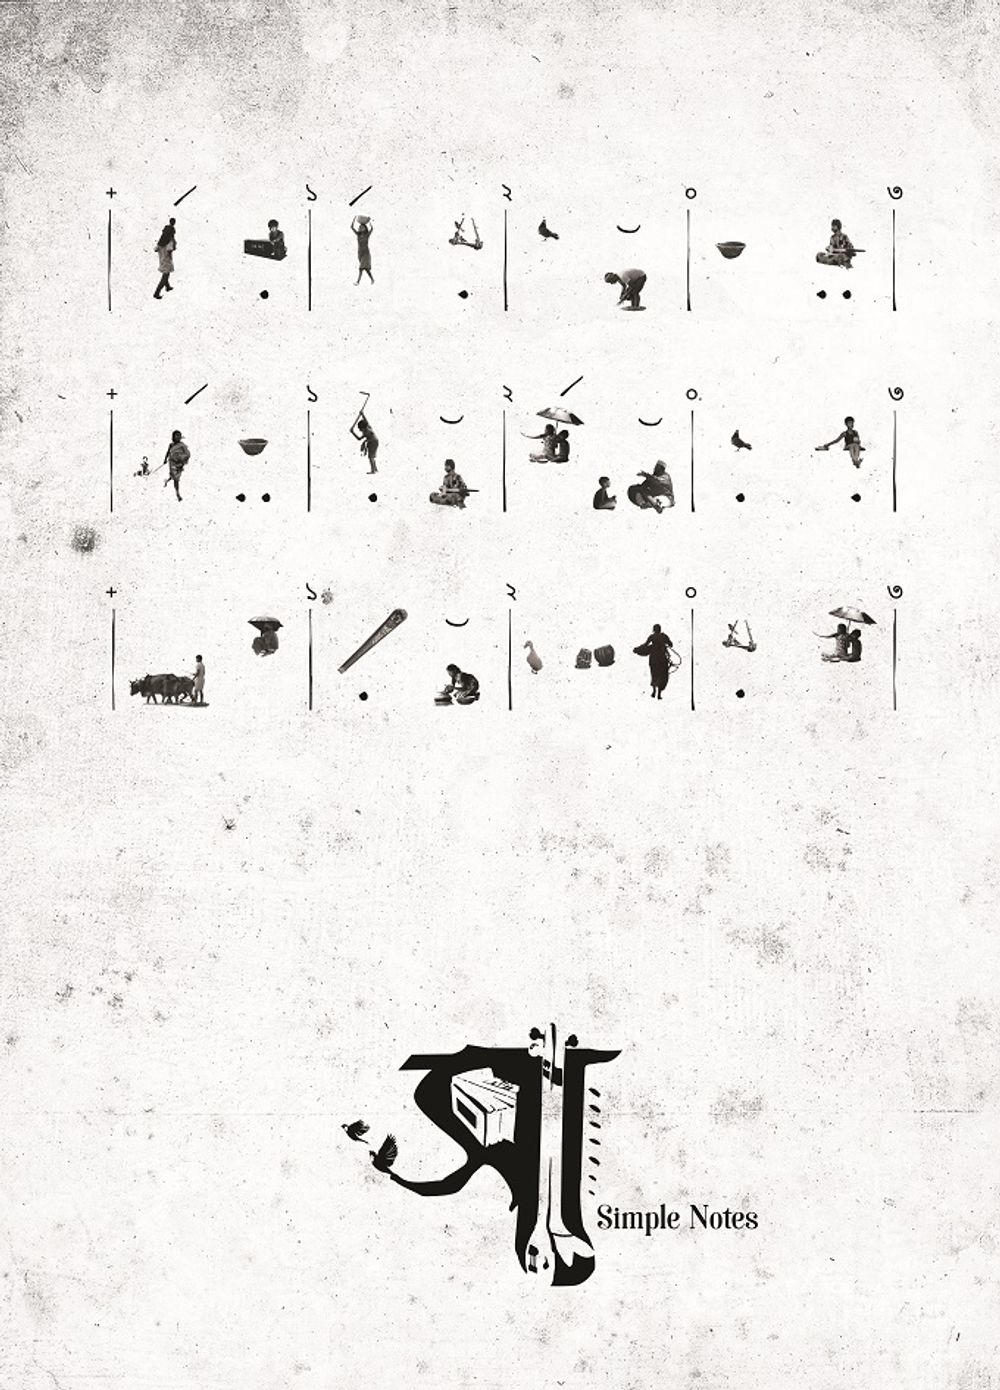 + ১ ২ ০ ৩
+ ১ ২ ০ ৩
+ ১ ২ ০ ৩
সা
Simple Notes